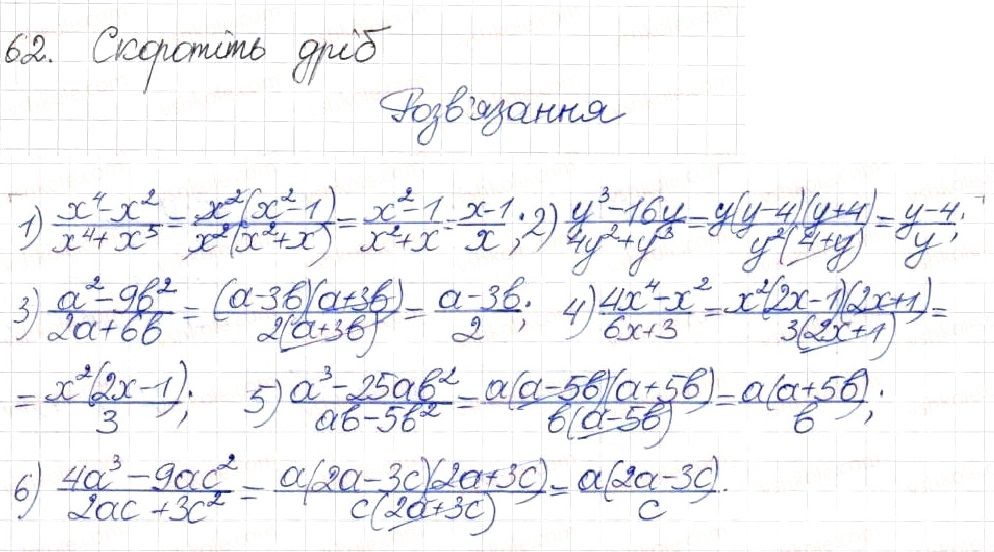 62. Скоротіть дріб
Розв'язання
1) \frac{x^4-x^2}{x^4+x^3} = \frac{x^2(x^2-1)}{x^2(x^2+x)} = \frac{x^2-1}{x^2+x} = \frac{x-1}{x}; 2) \frac{y^3-16y}{4y^2+y^3} = \frac{y(y-4)(y+4)}{y^2(4+y)} = \frac{y-4}{y};
3) \frac{a^2-9b^2}{2a+6b} = \frac{(a-3b)(a+3b)}{2(a+3b)} = \frac{a-3b}{2}; 4) \frac{4x^4-x^2}{6x+3} = \frac{x^2(2x-1)(2x+1)}{3(2x+1)} =
= \frac{x^2(2x-1)}{3}; 5) \frac{a^3-25ab^2}{ab-5b^2} = \frac{a(a-5b)(a+5b)}{b(a-5b)} = \frac{a(a+5b)}{b};
6) \frac{4a^3-9ac^2}{2ac+3c^2} = \frac{a(2a-3c)(2a+3c)}{c(2a+3c)} = \frac{a(2a-3c)}{c}.